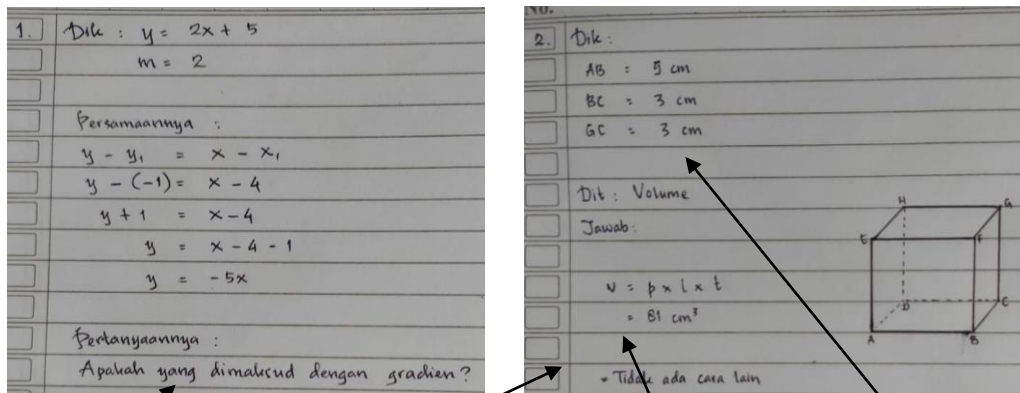 1. Dik : y = 2x + 5
m = 2
Persamaannya :
y - y₁ = x - x₁
y - (-1) = x - 4
y + 1 = x - 4
y = x - 4 - 1
y = - 5x
Pertanyaannya :
Apakah yang dimaksud dengan gradien?
No.
2. Dik :
AB = 5 cm
BC = 3 cm
GC = 3 cm
Dit : Volume
Jawab :
H G
E F
v = p x l x t
D C
= 81 cm³
A B
• Tidak ada cara lain